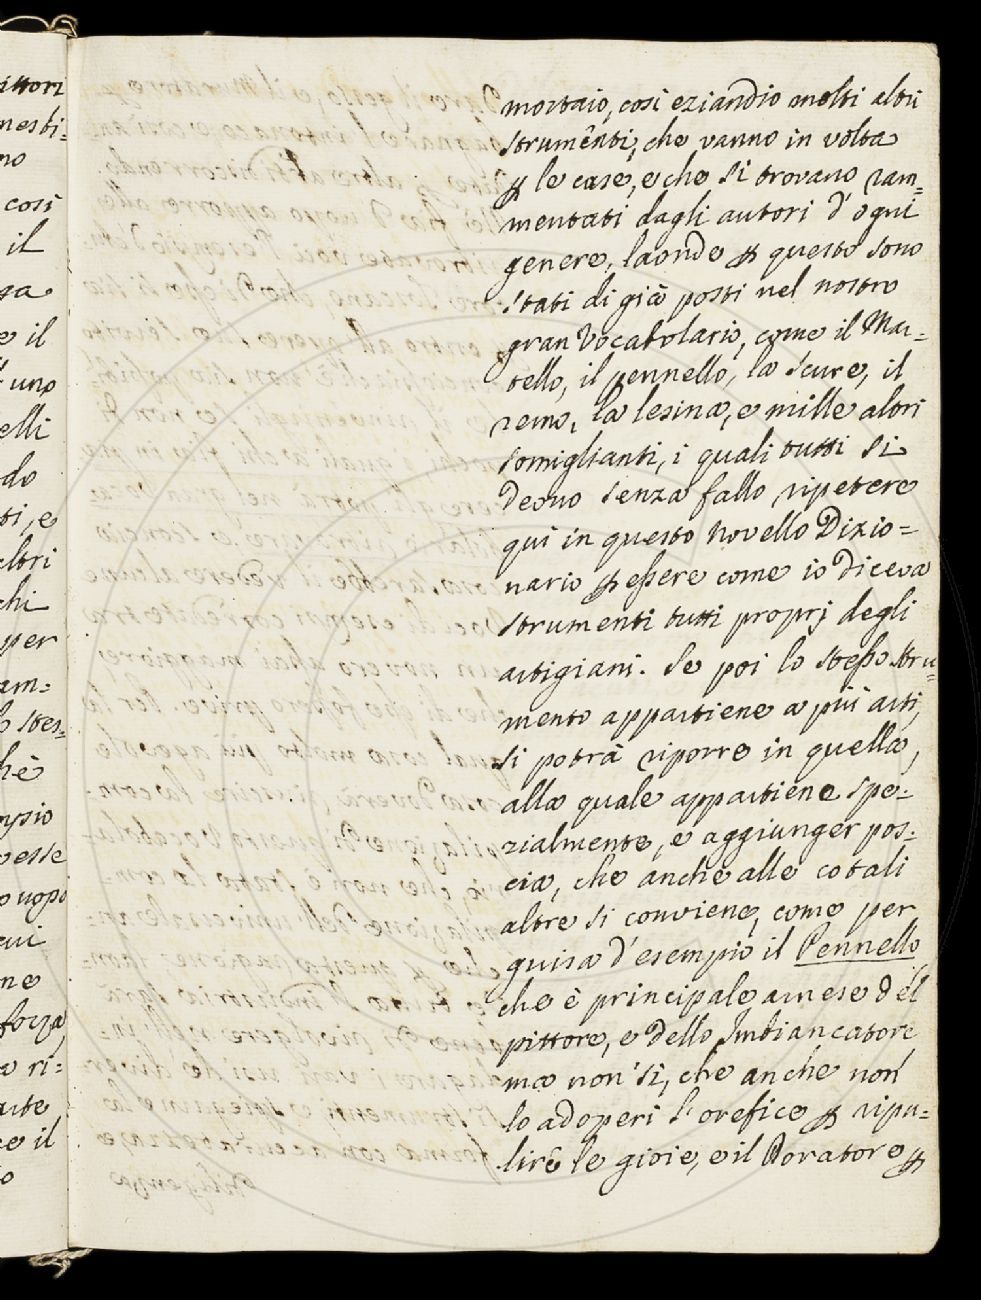 mortaio, così eziandio molti altri
strumenti, che vanno in volta
ꝑ le case, e che si trovano ram=
mentati dagli autori d'ogni
genere, laonde ꝑ questo sono
stati di già posti nel nostro
gran Vocabolario, come il Mar=
tello, il pennello, la scure, il
remo, la lesina, e mille altri
somiglianti, i quali tutti si
deono senza fallo ripetere
qui in questo novello Dizio=
nario ꝑ essere come io diceva
strumenti tutti proprj degli
artigiani. Se poi lo stesso stru=
mento appartiene a più arti,
si potrà riporre in quella,
alla quale appartiene spe=
zialmente, e aggiunger pos=
cia, che anche alle cotali
altre si conviene, come per
guisa d'esempio il Pennello
che è principale arnese del
pittore, e dello Imbiancatore
ma non sì, che anche non
lo adoperi l'orefice ꝑ ripu=
lire le gioie, e il Doratore ꝑ
ittori
no
così
il
e il
uno
elli
do
ti, e
altri
chi
per
am=
stes=
hè
uopo
ne
forza
ri=
il
o